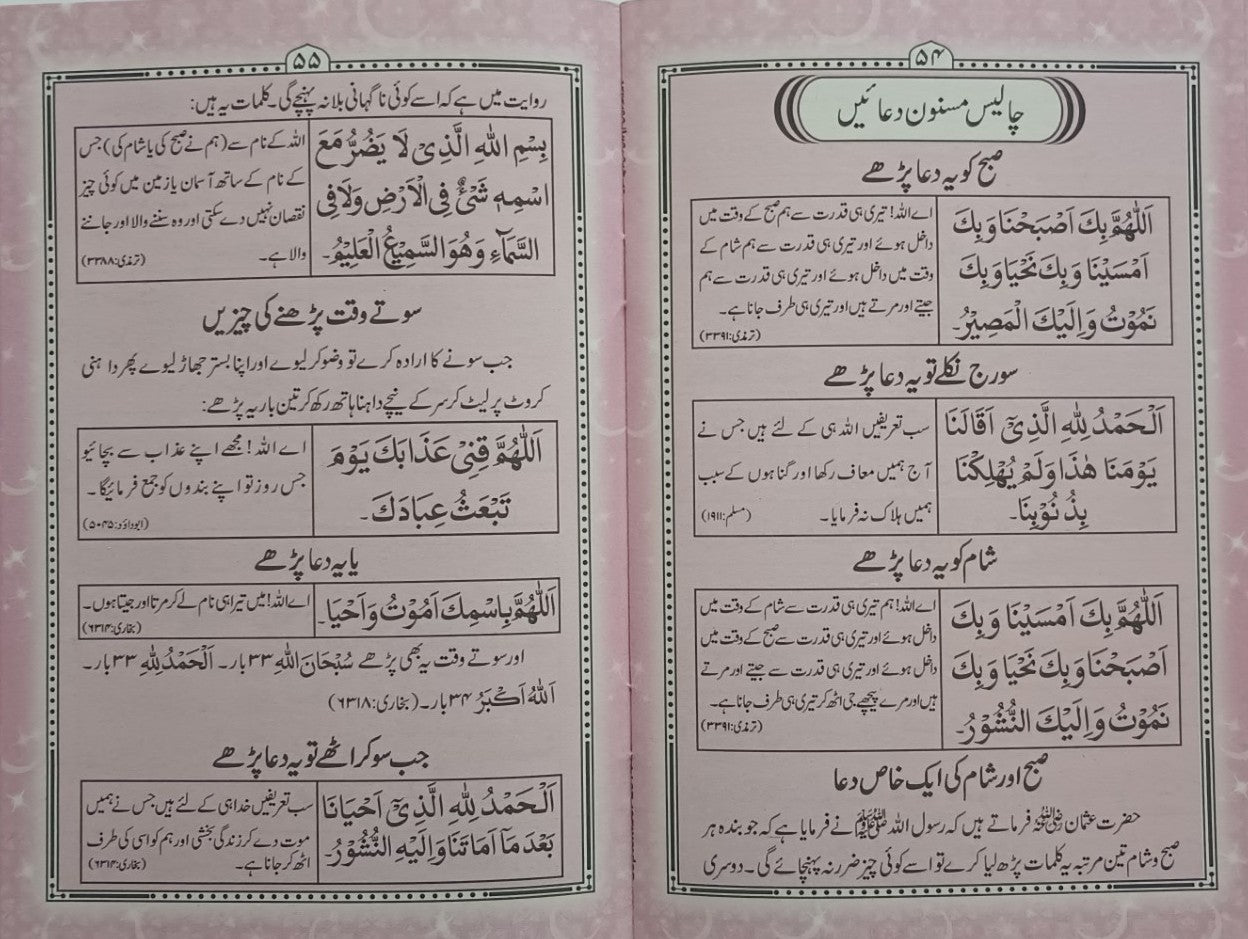 ۵۴
چالیس مسنون دعائیں
صبح کو یہ دعا پڑھے
اَللّٰهُمَّ بِكَ اَصْبَحْنَا وَبِكَ
اَمْسَيْنَا وَبِكَ نَحْيَا وَبِكَ
نَمُوْتُ وَاِلَيْكَ الْمَصِيْرُ۔
اے اللہ! تیری ہی قدرت سے ہم صبح کے وقت میں
داخل ہوئے اور تیری ہی قدرت سے ہم شام کے
وقت میں داخل ہوئے اور تیری ہی قدرت سے ہم
جیتے اور مرتے ہیں اور تیری ہی طرف جانا ہے۔
(ترمذی:۳۳۹۱)
سورج نکلے تو یہ دعا پڑھے
اَلْحَمْدُ لِلّٰهِ الَّذِیْٓ اَقَالَنَا
يَوْمَنَا هٰذَا وَلَمْ يُهْلِكْنَا
بِذُنُوْبِنَا۔
سب تعریفیں اللہ ہی کے لئے ہیں جس نے
آج ہمیں معاف رکھا اور گناہوں کے سبب
ہمیں ہلاک نہ فرمایا۔ (مسلم:۱۹۱۱)
شام کو یہ دعا پڑھے
اَللّٰهُمَّ بِكَ اَمْسَيْنَا وَبِكَ
اَصْبَحْنَا وَبِكَ نَحْيَا وَبِكَ
نَمُوْتُ وَاِلَيْكَ النُّشُوْرُ۔
اے اللہ! ہم تیری ہی قدرت سے شام کے وقت میں
داخل ہوئے اور تیری ہی قدرت سے صبح کے وقت میں
داخل ہوئے اور تیری ہی قدرت سے جیتے اور مرتے
ہیں اور مرے پیچھے جی اٹھ کر تیری ہی طرف جانا ہے۔
(ترمذی:۳۳۹۱)
صبح اور شام کی ایک خاص دعا
حضرت عثمان رضی اللہ عنہ فرماتے ہیں کہ رسول اللہ ﷺ نے فرمایا ہے کہ جو بندہ ہر
صبح و شام تین مرتبہ یہ کلمات پڑھ لیا کرے تو اسے کوئی چیز ضرر نہ پہنچائے گی۔ دوسری
۵۵
روایت میں ہے کہ اسے کوئی ناگہانی بلا نہ پہنچے گی۔ کلمات یہ ہیں:
بِسْمِ اللّٰهِ الَّذِیْ لَا يَضُرُّ مَعَ
اسْمِهٖ شَیْءٌ فِی الْاَرْضِ وَلَا فِی
السَّمَآءِ وَهُوَ السَّمِيْعُ الْعَلِيْمُ۔
اللہ کے نام سے (ہم نے صبح کی یا شام کی) جس
کے نام کے ساتھ آسمان یا زمین میں کوئی چیز
نقصان نہیں دے سکتی اور وہ سننے والا اور جاننے
والا ہے۔ (ترمذی:۳۳۸۸)
سوتے وقت پڑھنے کی چیزیں
جب سونے کا ارادہ کرے تو وضو کر لیوے اور اپنا بستر جھاڑ لیوے پھر داہنی
کروٹ پر لیٹ کر سر کے نیچے داہنا ہاتھ رکھ کر تین بار یہ پڑھے:
اَللّٰهُمَّ قِنِیْ عَذَابَكَ يَوْمَ
تَبْعَثُ عِبَادَكَ۔
اے اللہ! مجھے اپنے عذاب سے بچائیو
جس روز تو اپنے بندوں کو جمع فرمائیگا۔
(ابوداؤد:۵۰۴۵)
یا یہ دعا پڑھے
اَللّٰهُمَّ بِاسْمِكَ اَمُوْتُ وَاَحْيَا۔
اے اللہ! میں تیرا ہی نام لے کر مرتا اور جیتا ہوں۔
(بخاری:۶۳۱۴)
اور سوتے وقت یہ بھی پڑھے سُبْحَانَ اللّٰهِ ۳۳ بار۔ اَلْحَمْدُ لِلّٰهِ ۳۳ بار۔
اَللّٰهُ اَكْبَرُ ۳۴ بار۔ (بخاری:۶۳۱۸)
جب سو کر اٹھے تو یہ دعا پڑھے
اَلْحَمْدُ لِلّٰهِ الَّذِیْٓ اَحْيَانَا
بَعْدَ مَآ اَمَاتَنَا وَاِلَيْهِ النُّشُوْرُ۔
سب تعریفیں خدا ہی کے لئے ہیں جس نے ہمیں
موت دے کر زندگی بخشی اور ہم کو اسی کی طرف
اٹھ کر جانا ہے۔ (بخاری:۶۳۱۴)